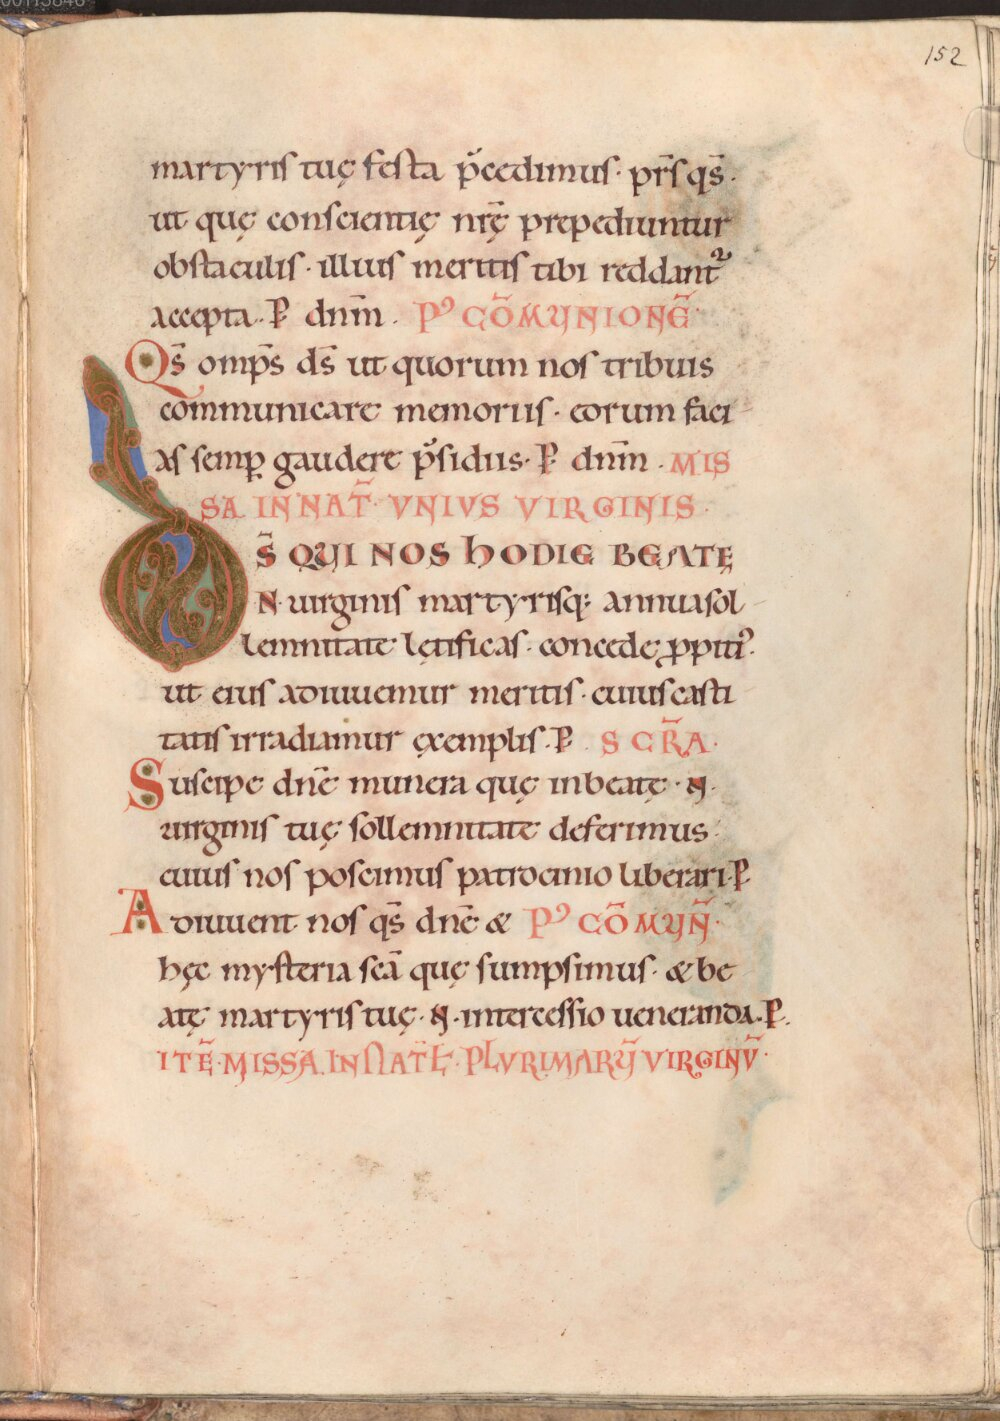 152
martyris tuę festa p̃cedimus · pr̃s qs̃ ·
ut quę conscientię nr̃ę prepediuntur
obstaculis · illius meritis tibi reddant᷑
accepta · P̱ dnm̃ . P' CÕMVNIONẼ
Qs̃ omp̃s ds̃ ut quorum nos tribuis
communicare memoriis · eorum faci
as semꝑ gaudere p̃sidiis · P̱ dnm̃ . MIS
SA IN NAT̃ VNIVS VIRGINIS ·
DS̃ QVI NOS HODIE BEATĘ
N · uirginis martyrisq; annua sol
lemnitate lętificas · concede ꝓpiti᾽ ·
ut eius adiuuemur meritis · cuius casti
tatis irradiamur ęxemplis · P̱ . SECR̃A ·
Suscipe dnẽ munera quę in beatę · N ·
uirginis tuę sollemnitate deferimus ·
cuius nos poscimus patrocinio liberari · P̱
Adiuuent nos qs̃ dnẽ & P' CÕMVÑ ·
hęc mysteria scã quę sumpsimus · & be
atę martyris tuę · N · intercessio ueneranda · P̱ .
ITẼ · MISSA IN NATĿ · PLVRIMARṼ VIRGINṼ ·